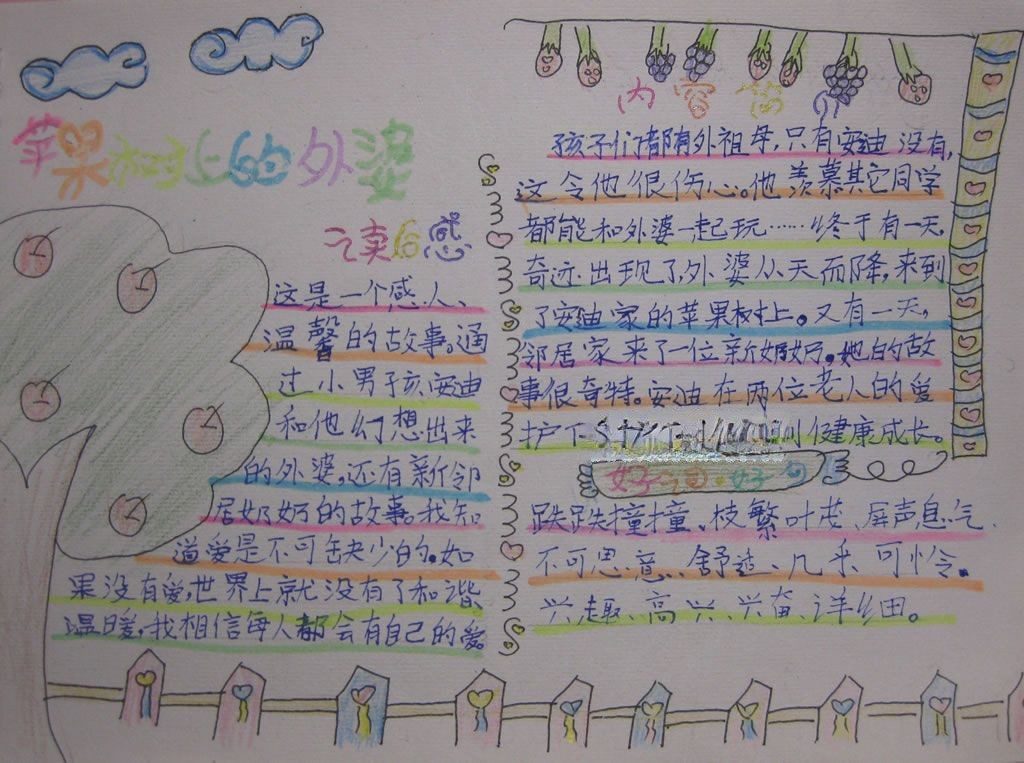 苹果树上的外婆
之读后感
这是一个感人、
温馨的故事。通
过小男孩安迪
和他幻想出来
的外婆,还有新邻
居奶奶的故事。我知
道爱是不可缺少的。如
果没有爱,世界上就没有了和谐
温暖,我相信每人都会有自己的爱。
内容简介
孩子们都有外祖母,只有安迪没有,
这令他很伤心。他羡慕其它同学
都能和外婆一起玩……终于有一天,
奇迹出现了,外婆从天而降,来到
了安迪家的苹果树上。又有一天,
邻居家来了一位新奶奶。她的故
事很奇特。安迪在两位老人的爱
护下 健康成长。
好词·好句
跌跌撞撞、枝繁叶茂、屏声息气、
不可思意、舒适、几乎、可怜。
兴趣、高兴、兴奋、详细。